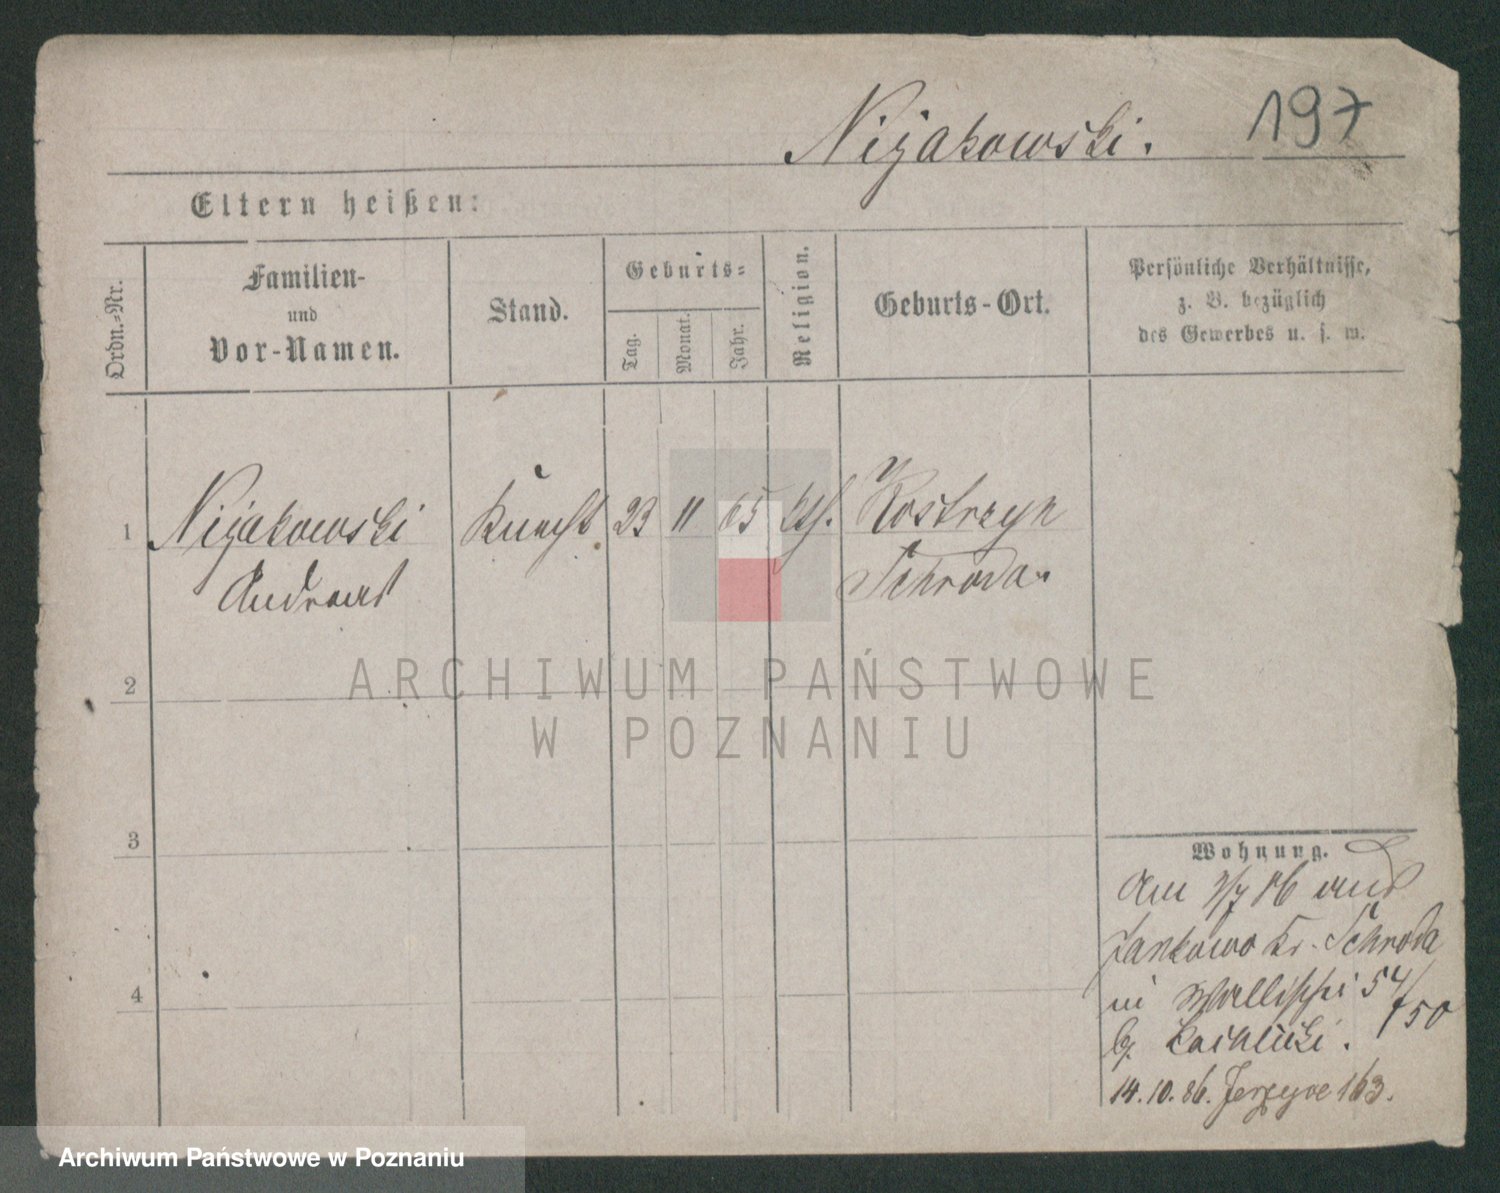 Nijakowski.
197
Eltern heißen:
Ordn.-Nr.
Familien-
und
Vor-Namen.
Stand.
Geburts-
Tag.
Monat.
Jahr.
Religion.
Geburts-Ort.
Persönliche Verhältnisse,
z. B. bezüglich
des Gewerbes u. s. w.
1 Nijakowski Knecht 23 11 65 kth. Kostrzyn
Andreas Schroda.
2
ARCHIWUM PAŃSTWOWE
W POZNANIU
3
Wohnung.
Am 2/7 86 aus
Jankowo Kr. Schroda
4
in Wallischei 54/
50
b.
14.10.86. Jerzyce 163.
Archiwum Państwowe w Poznaniu